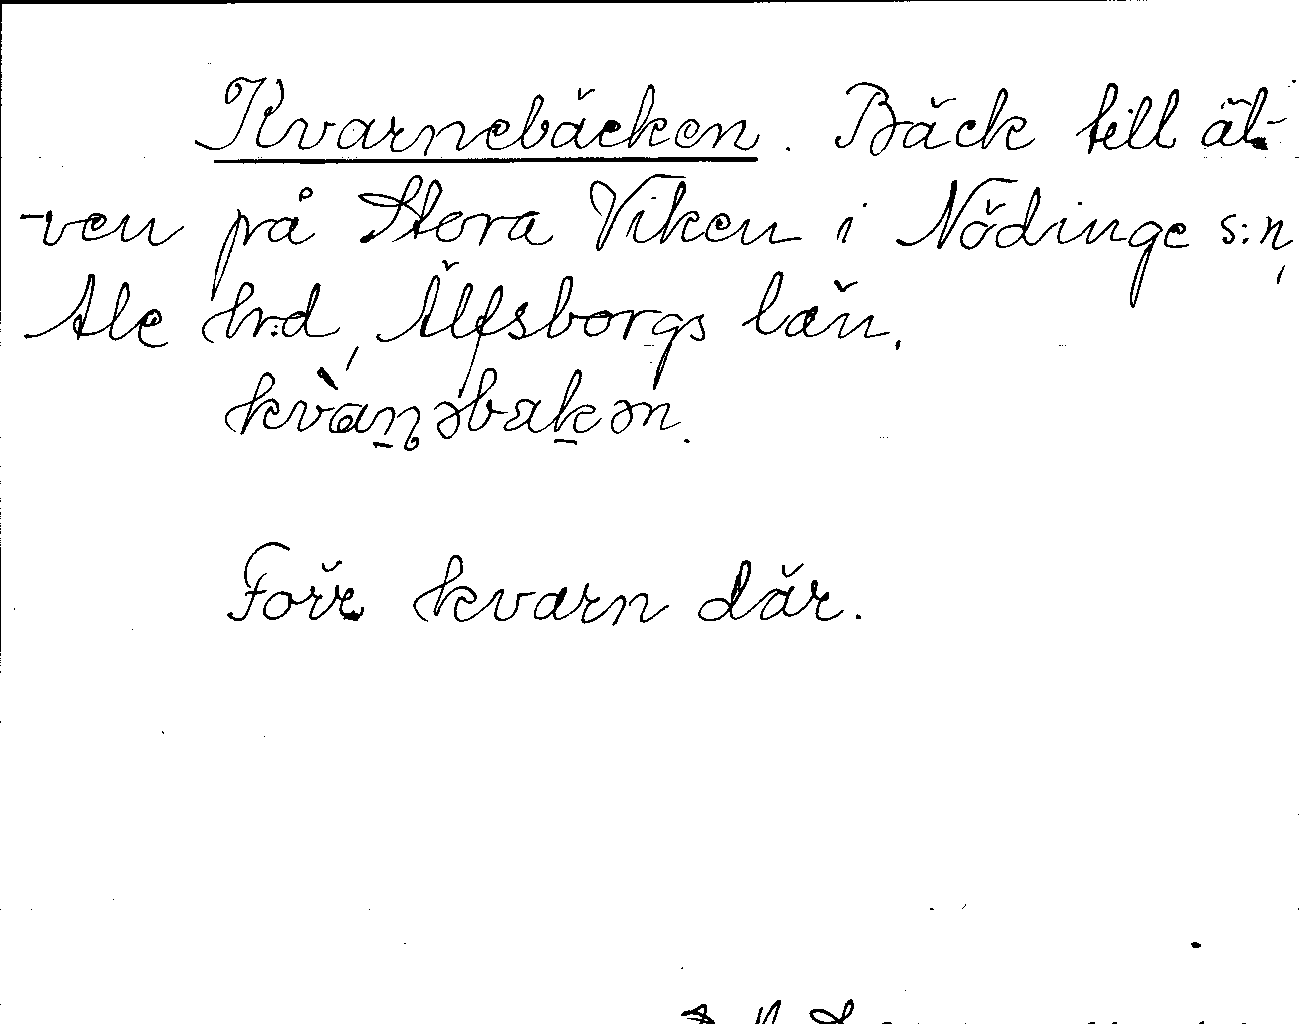 Kvarnebäcken. Bäck till äl-
ven på Stora Viken i Nödinge s:n,
Ale hrd, Älfsborgs län.
kvàṉəbäḵən.
Förr kvarn där.